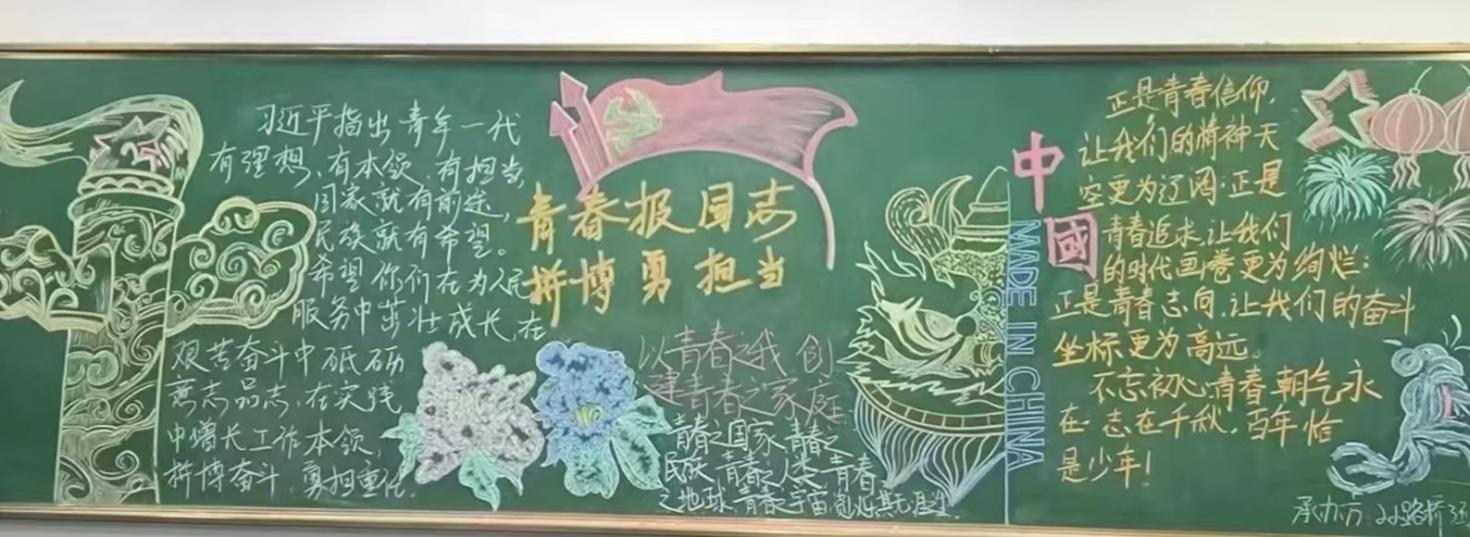 习近平指出青年一代
有理想、有本领、有担当,
国家就有前途,
民族就有希望。
希望你们在为人民
服务中茁壮成长,在
艰苦奋斗中砥砺
意志品志,在实践
中增长工作本领,
拼博奋斗,勇担重任。
青春报国志
拼博勇担当
以青春之我 创
建青春之家庭
青春之国家 青春之
民族 青春之人类 青春
之地球 青春之宇宙
中
國
MADE IN CHINA
正是青春信仰,
让我们的精神天
空更为辽阔;正是
青春追求,让我们
的时代画卷更为绚烂;
正是青春志向,让我们的奋斗
坐标更为高远。
不忘初心,青春朝气永
在·志在千秋,百年恰
是少年!
承办方